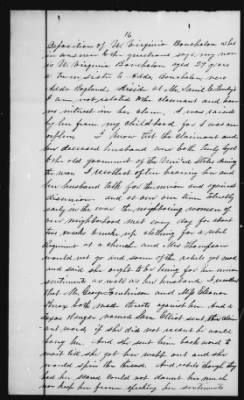 16
Deposition of W. Virginia Bonchalon who
in answer to the questions says, my name
is W. Virginia Bonchalon aged 29 years
a sister to Adda Bonchalon, now
Adda I reside at Mr.
I am not related to the claimant and have
no interest in her claim, I was raised
by him from my childhood, for I was an
orphan I know that the claimant and
his deceased husband were both truly loyal
to the old government of the United States during
the war I recollect often hearing him and
her husband talk for the union and against
disunion and at one time
early in the war the neighboring women of
our neighborhood met every day for about
two weeks to make up clothing for a rebel
Regiment at a church and Mrs Thompson
would not go and some of the rebels got mad
and said she ought to be hung for her union
sentiments as well as her husband I recollect
that Mr George and
both made threats against him. And a
named Sam Elliot sent this claim-
ant word if she did not recant he would
hang her And she sent him back word to
wait till she got her out and she
would spin the thread. And rebels though they
had her scared could not daunt her much
nor keep her from speaking her sentiments